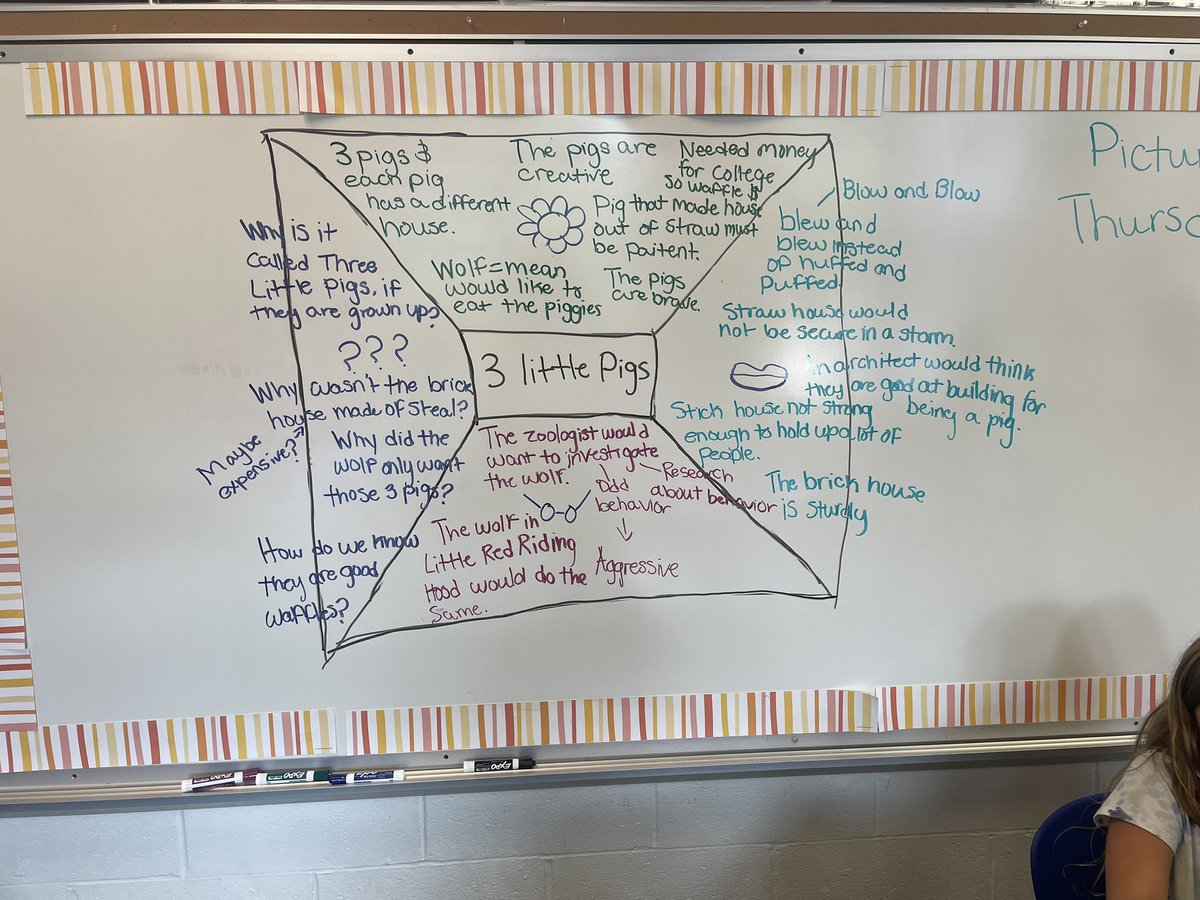 3 pigs &
each pig
has a different
house.
The pigs are
creative
Needed money
for College
so waffle $
Pig that made house
out of straw must
be paitent.
Wolf=mean
would like to
eat the piggies
The pigs
are brave.
Why is it
called Three
Little Pigs, if
they are grown up?
???
Why wasn't the brick
house made of steal?
Maybe
expensive?
Why did the
wolf only want
those 3 pigs?
How do we know
they are good
waffles?
3 little Pigs
Blow and Blow
blew and
blew instead
of huffed and
puffed
Straw house would
not be secure in a storm.
An architect would think
they are good at building for
being a pig.
Stick house not strong
enough to hold up a lot of
people.
The brick house
is sturdy
The zoologist would
want to investigate
the wolf.
Odd
behavior
Research
about behavior
Aggressive
The wolf in
Little Red Riding
Hood would do the
same.
Pictu
Thursd
EXPO
EXPO
EXPO
EXPO